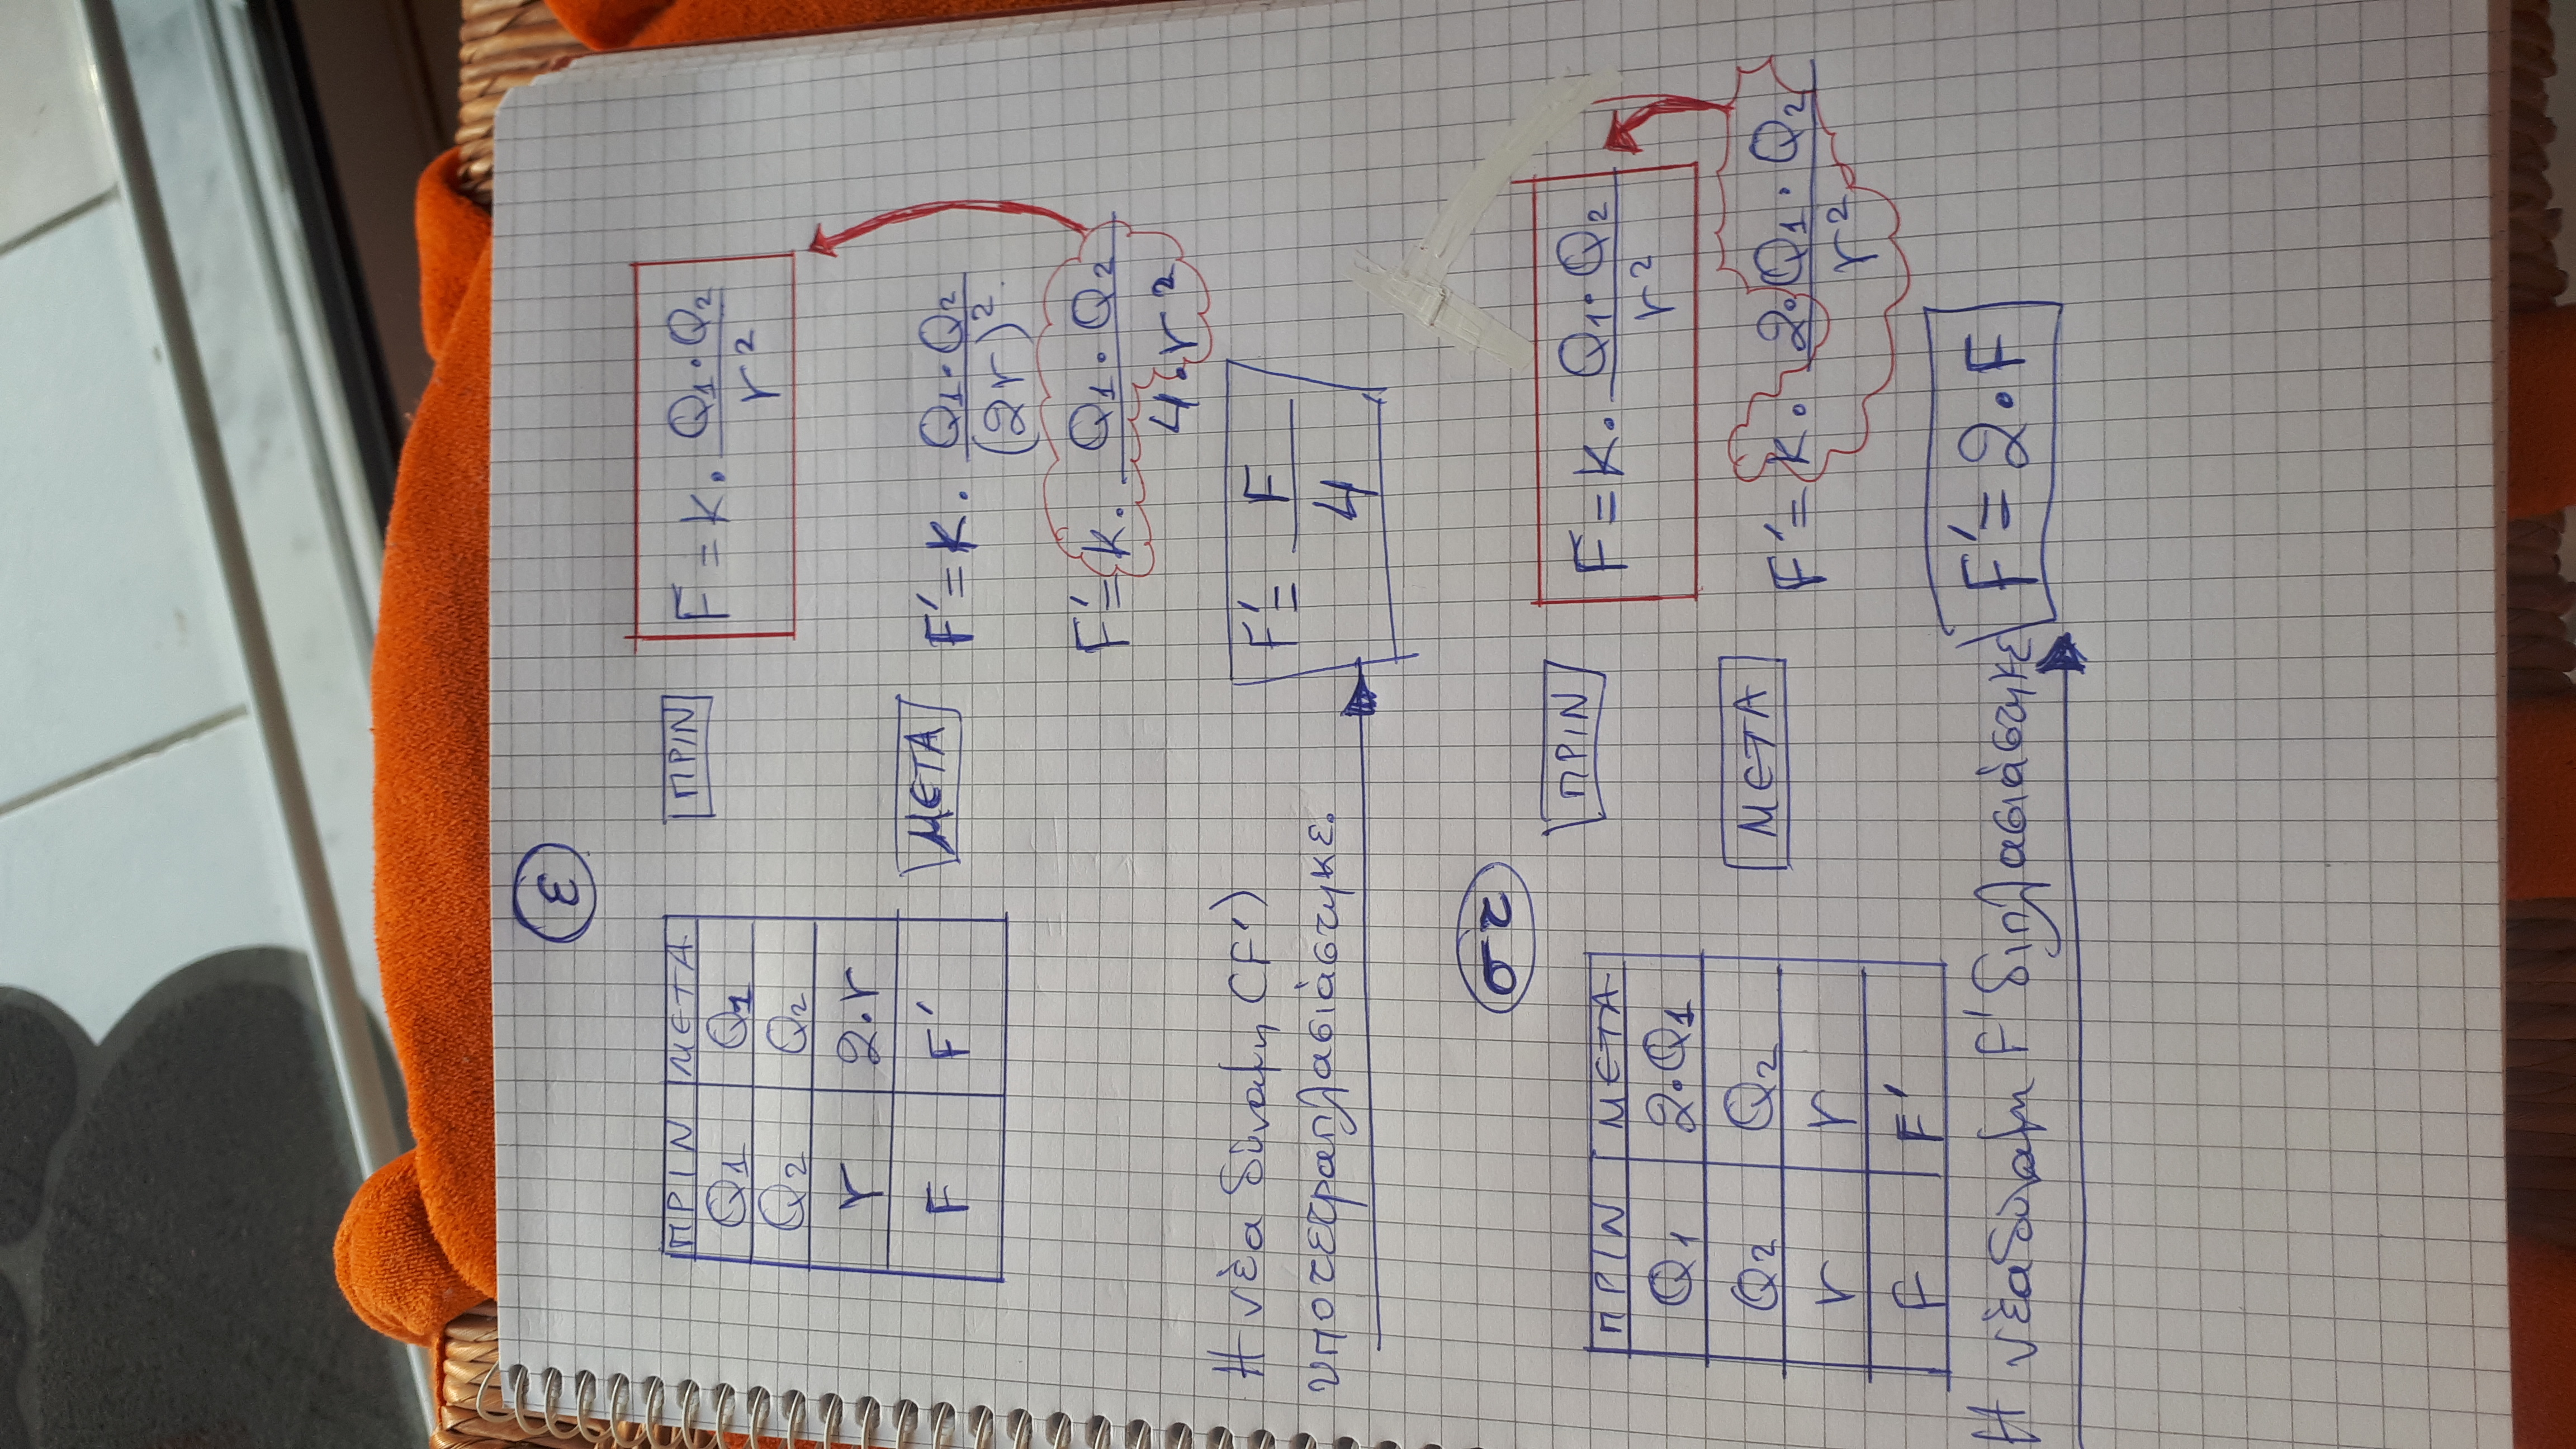 ε
ΠΡΙΝ ΜΕΤΑ
Q1 Q1
Q2 Q2
r 2·r
F F'
ΠΡΙΝ
F = K· Q1·Q2 / r²
ΜΕΤΑ
F' = K· Q1·Q2 / (2r)²
F' = K· Q1·Q2 / 4·r²
Η νέα δύναμη (F')
υποτετραπλασιάστηκε.
F' = F / 4
στ
ΠΡΙΝ ΜΕΤΑ
Q1 2·Q1
Q2 Q2
r r
F F'
ΠΡΙΝ
F = K· Q1·Q2 / r²
ΜΕΤΑ
F' = K· 2·Q1·Q2 / r²
Η νέα δύναμη F' διπλασιάστηκε
F' = 2·F